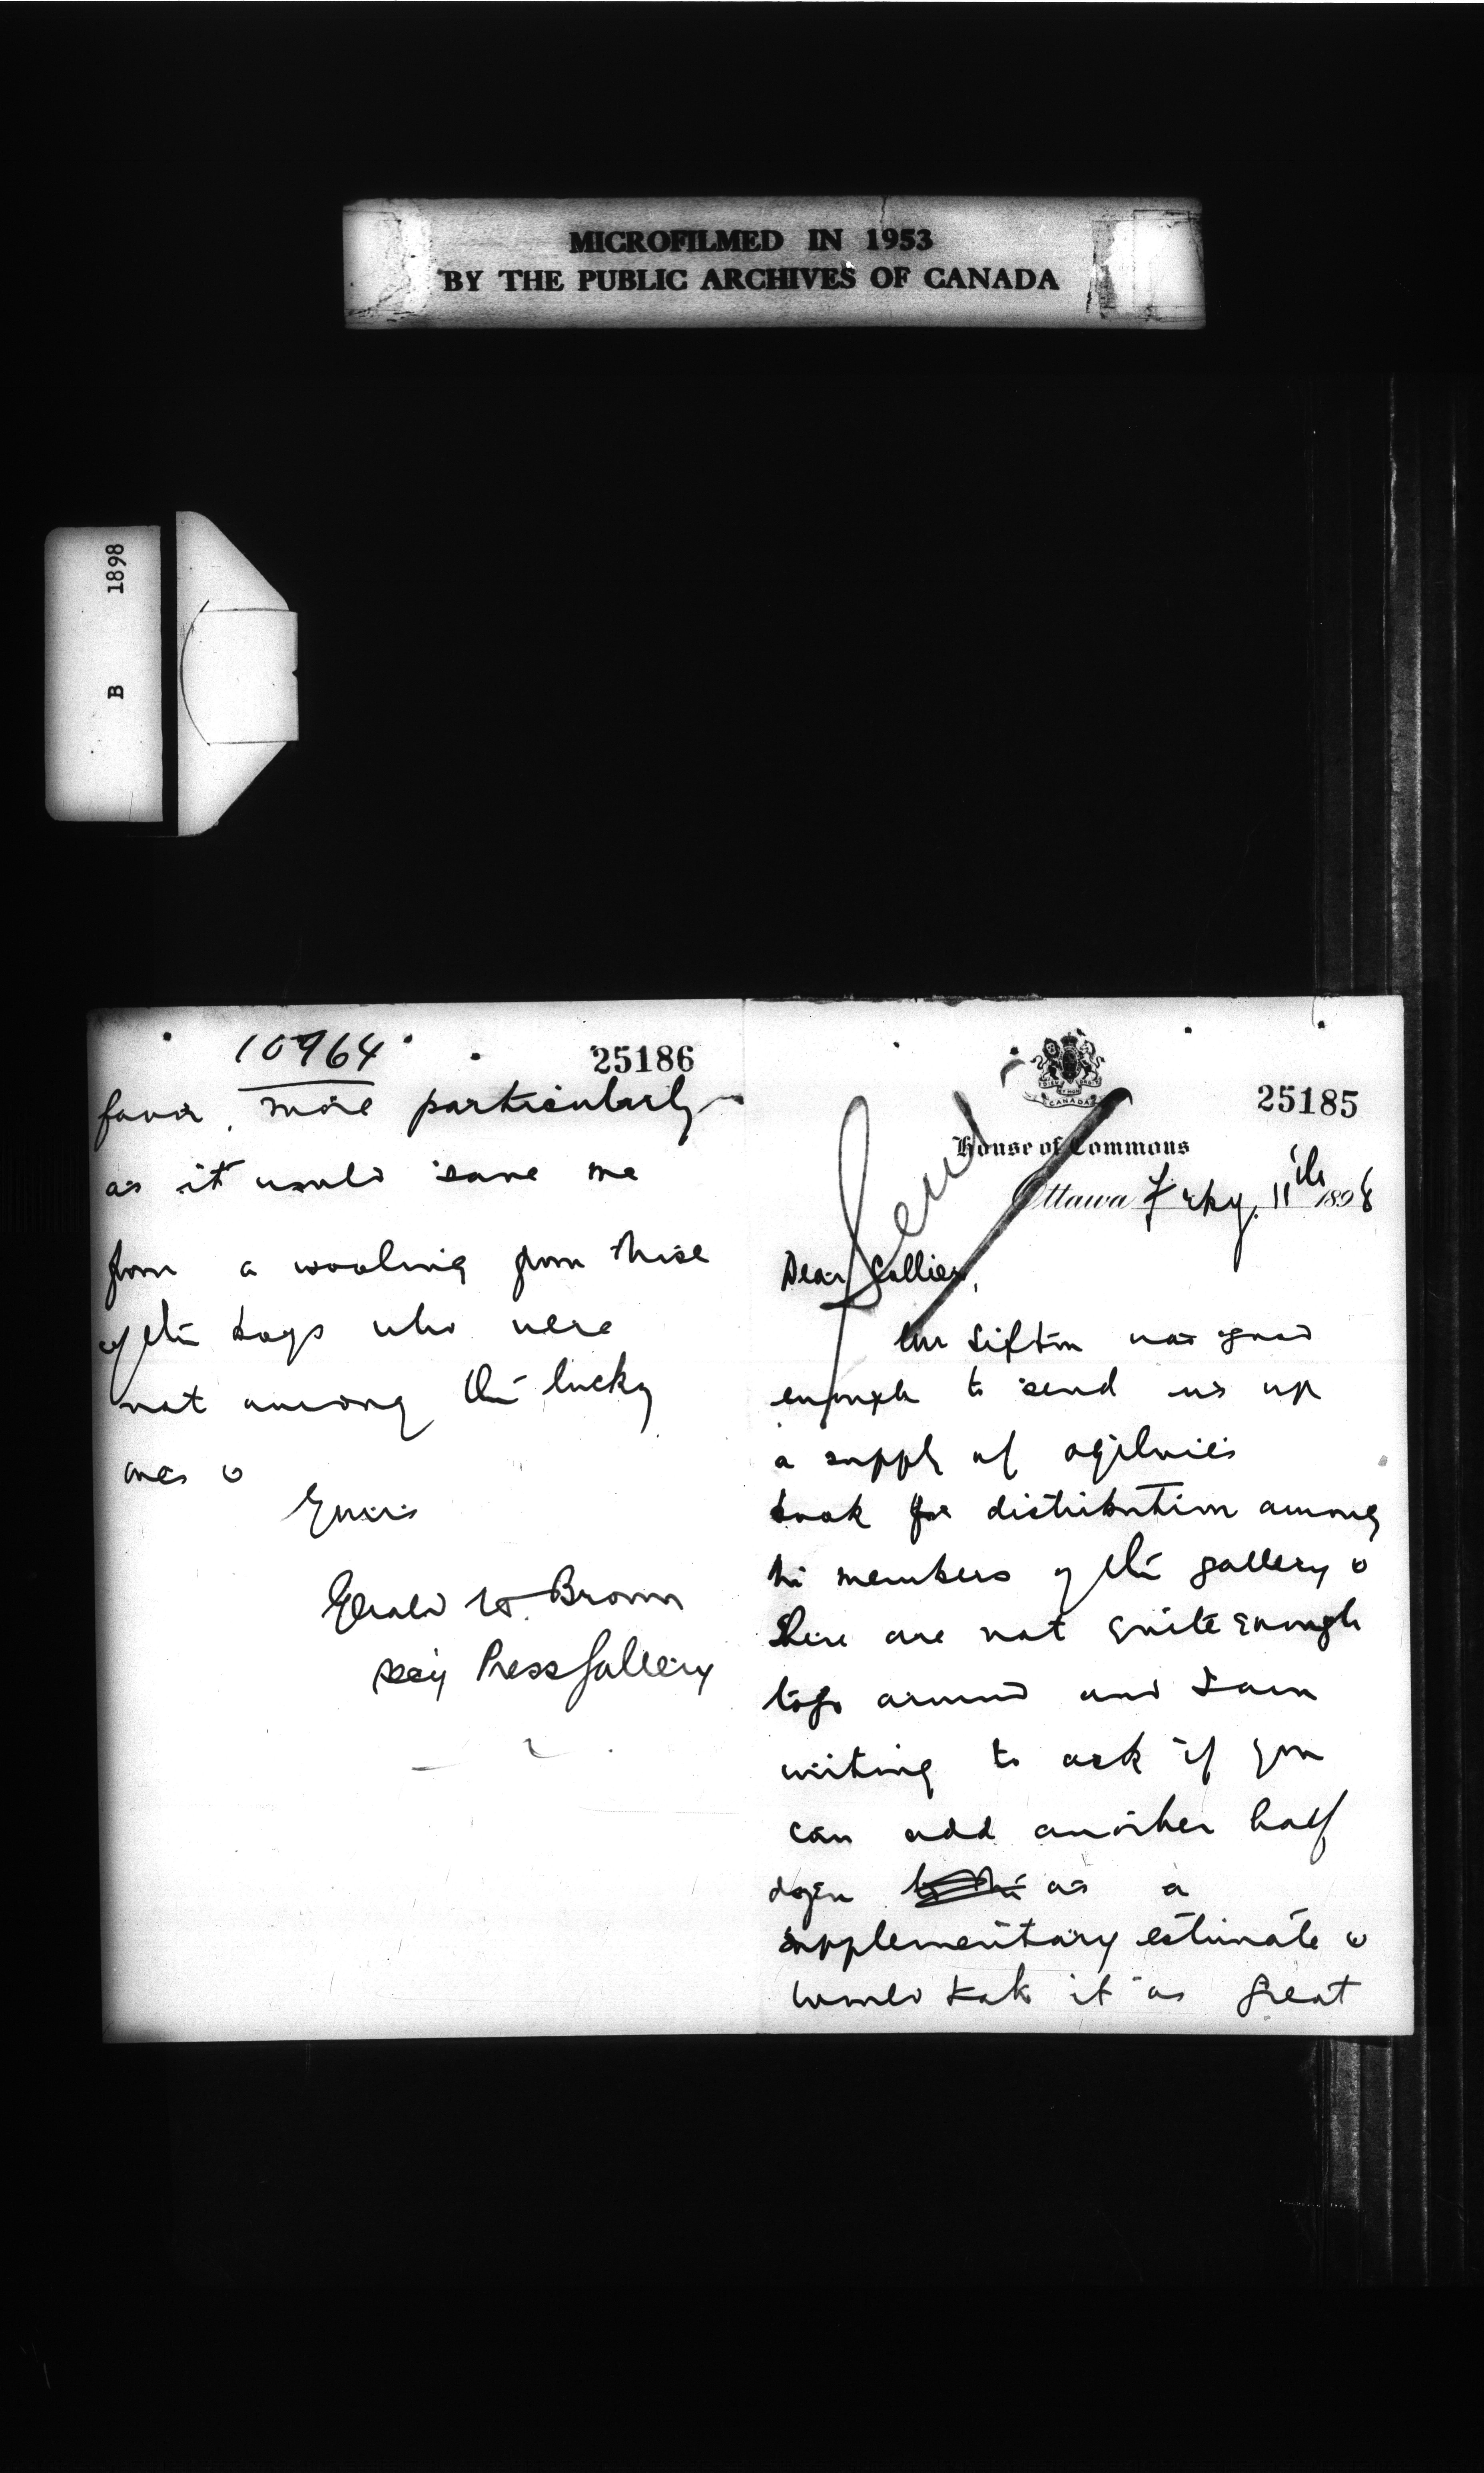 MICROFILMED IN 1953
BY THE PUBLIC ARCHIVES OF CANADA
B 1898
25185
CANADA
House of Commons
Send
Ottawa Feby. 11th 1898
Dear Collier,
Mr Sifton was good
enough to send us up
a supply of Ogilvie's
book for distribution among
the members of the gallery.
There are not quite enough
to go around and I am
writing to ask if you
can add another half
dozen as a
supplementary estimate.
Would take it as great
10964
25186
favor, more particularly
as it would save me
from a wooling from those
of the boys who were
not among the lucky
ones.
Yours
Gerald W. Brown
Secy Press Gallery